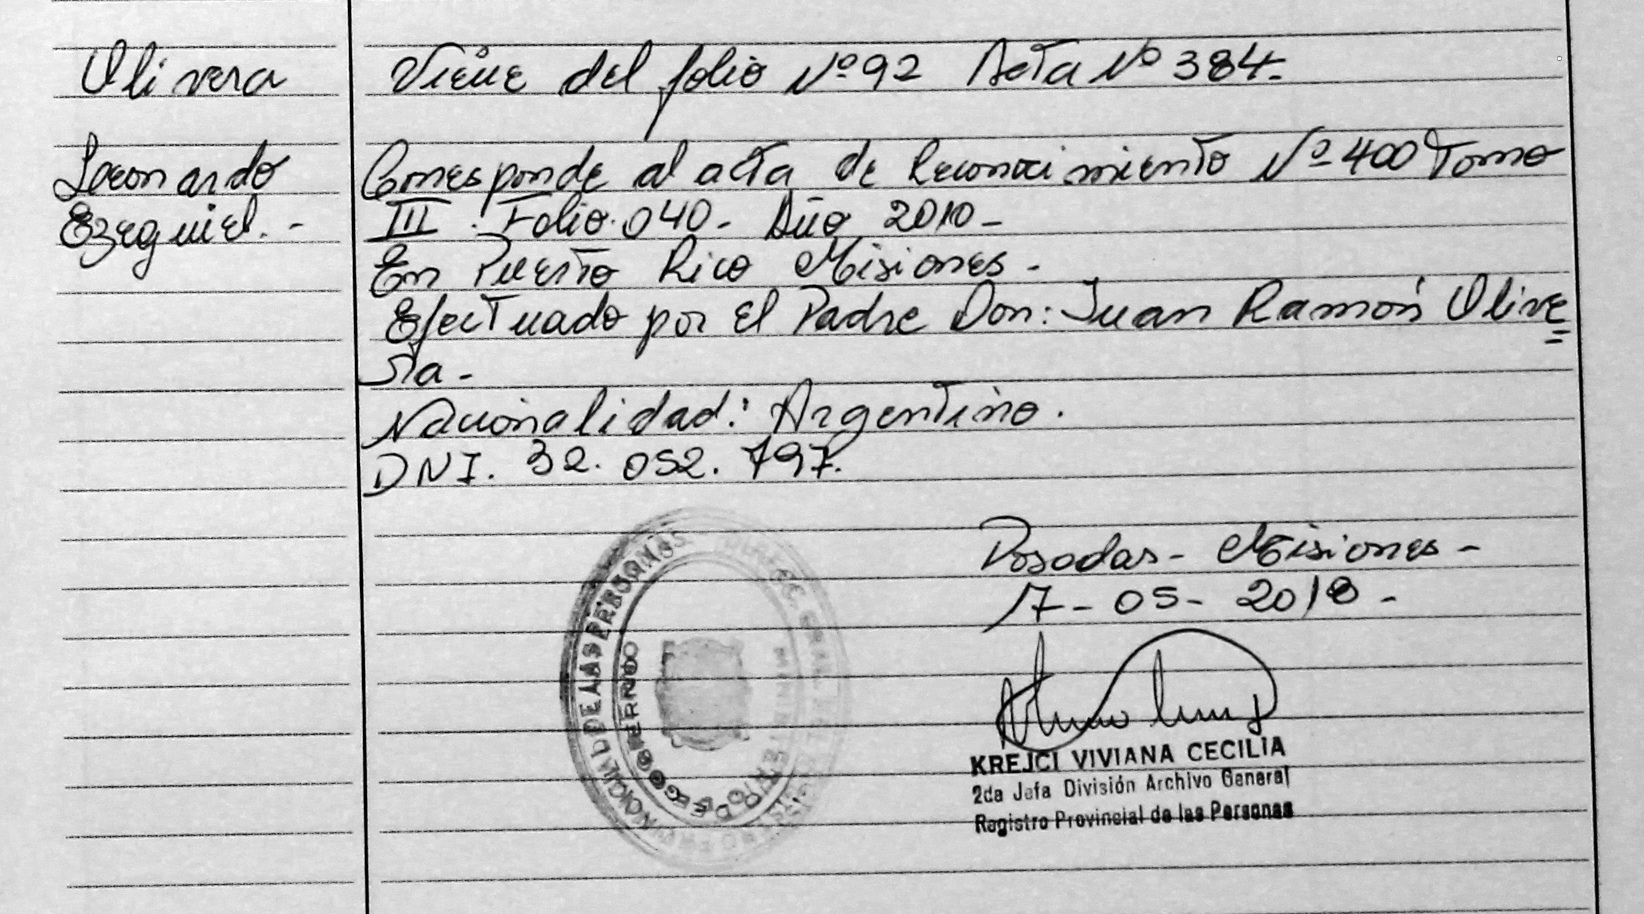 Olivera
Leonardo
Ezequiel. -
Viene del folio Nº 92 Acta Nº 384.-
Corresponde al acta de Reconocimiento Nº 400 Tomo
III. Folio. 040. Año 2010-
En Puerto Rico Misiones.
Efectuado por el Padre Don: Juan Ramón Olive
=
ra.
Nacionalidad: Argentino.
DNI. 32. 052. 797.
Posadas - Misiones -
17- 05- 2018 -
KREJCI VIVIANA CECILIA
2da Jefa División Archivo General
Registro Provincial de las Personas
PROVINCIAL DE LAS PERSONAS
MINISTERIO DE GOBIERNO